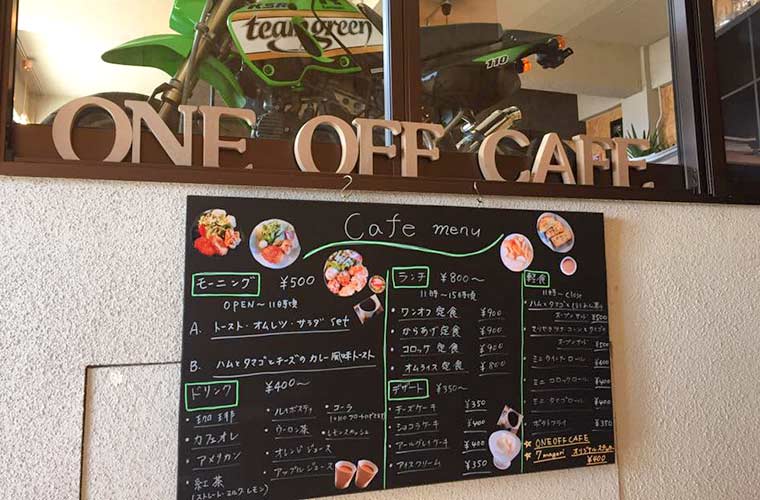 KSR
team green
110
ONE OFF CAFE
Cafe menu
モーニング ¥500
OPEN〜11時頃
A. トースト・オムレツ・サラダ set
B. ハムとタマゴとチーズのカレー風味トースト
ドリンク ¥400〜
・珈琲
・カフェオレ
・アメリカン
・紅茶
(ストレート・ミルク・レモン)
・ルイボスティ
・ウーロン茶
・オレンジジュース
・アップルジュース
・コーラ
・レモンスカッシュ
ランチ ¥800〜
11時〜15時頃
・ワンオフ定食 ¥900
・からあげ定食 ¥900
・コロッケ定食 ¥900
・オムライス定食 ¥800
デザート ¥350〜
・チーズケーキ ¥350
・ショコラケーキ ¥400
・アールグレイケーキ ¥400
・アイスクリーム ¥350
軽食
11時〜close
オープンサンド ¥500
オープンサンド ¥500
・ミニウインナーロール ¥400
・ミニコロッケロール ¥400
・ミニタマゴロール ¥400
・ポテトフライ ¥350
☆ ONE OFF CAFE
☆ 7 magari オリジナルステッカー
¥400